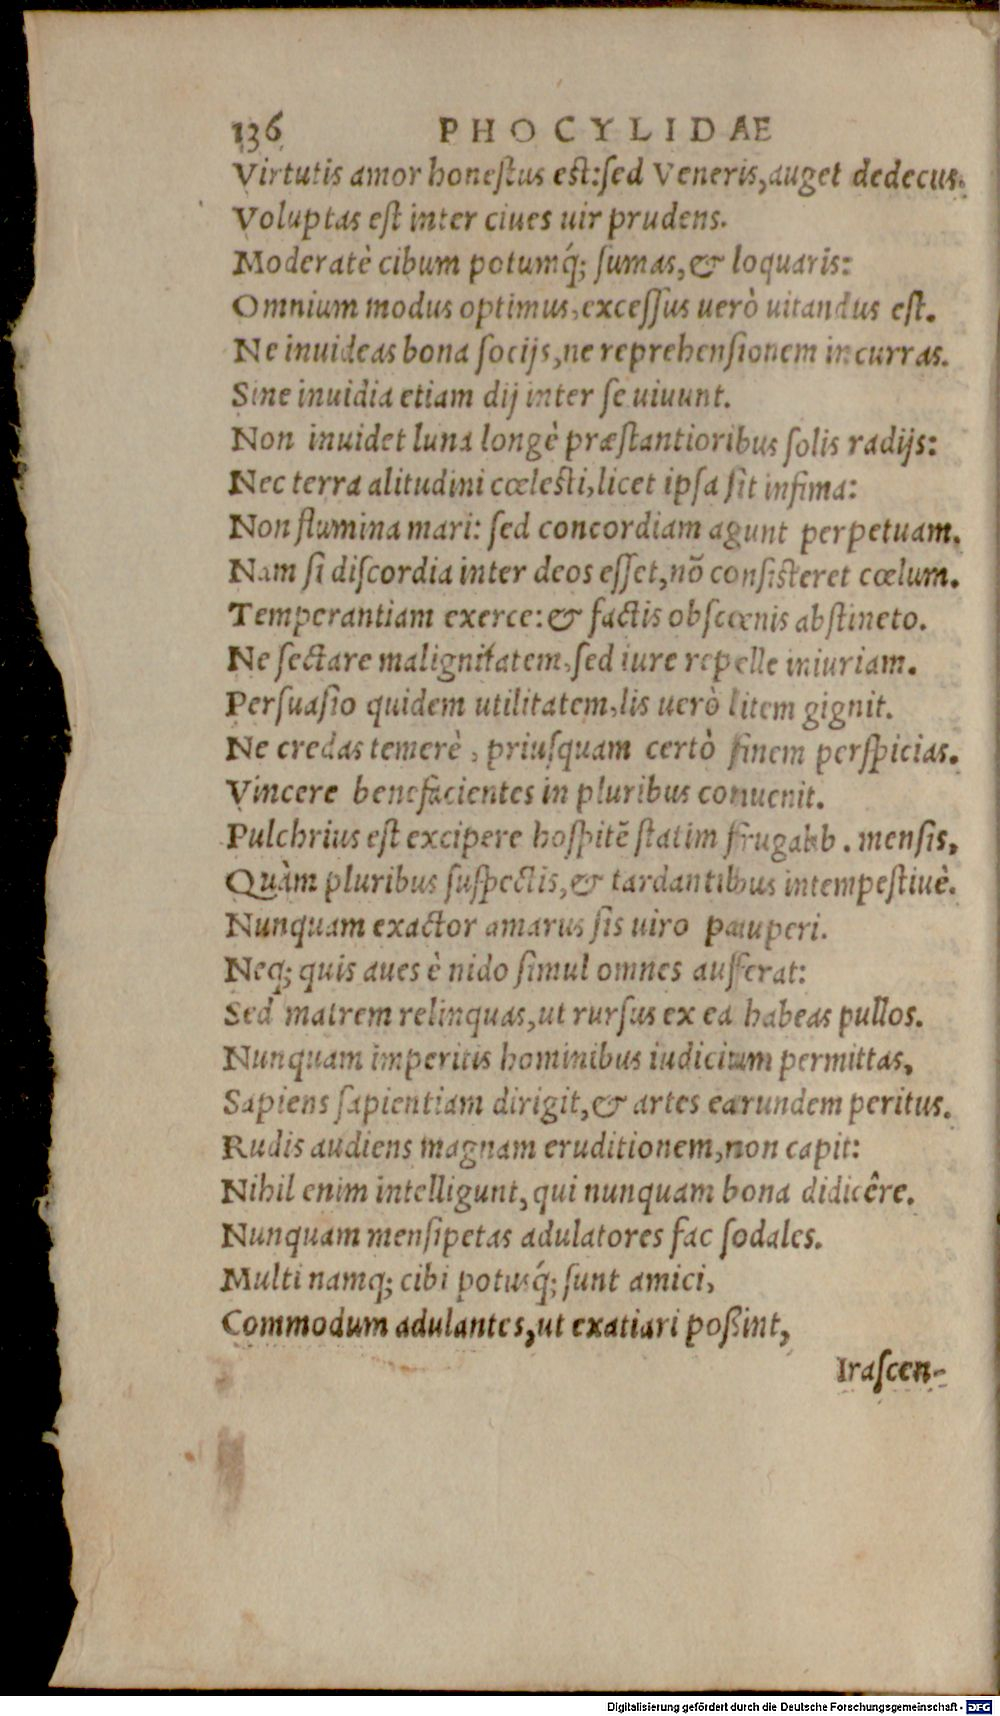 136 PHOCYLIDAE
Virtutis amor honestus est:sed Veneris,auget dedecus.
Voluptas est inter ciues uir prudens.
Moderatè cibum potumq́; sumas,& loquaris:
Omnium modus optimus,excessus uerò uitandus est.
Ne inuideas bona socijs,ne reprehensionem incurras.
Sine inuidia etiam dij inter se uiuunt.
Non inuidet luna longè præstantioribus solis radijs:
Nec terra alitudini cœlesti,licet ipsa sit infima:
Non flumina mari: sed concordiam agunt perpetuam.
Nam si discordia inter deos esset,nõ consisteret cœlum.
Temperantiam exerce:& factis obscœnis abstineto.
Ne sectare malignitatem,sed iure repelle iniuriam.
Persuasio quidem utilitatem,lis uerò litem gignit.
Ne credas temerè, priusquam certò finem perspicias.
Vincere benefacientes in pluribus conuenit.
Pulchrius est excipere hospitẽ statim frugalib. mensis,
Quàm pluribus suspectis,& tardantibus intempestiuè.
Nunquam exactor amarus sis uiro pauperi.
Neq; quis aues è nido simul omnes aufferat:
Sed matrem relinquas,ut rursus ex ea habeas pullos.
Nunquam imperitis hominibus iudicium permittas,
Sapiens sapientiam dirigit,& artes earundem peritus.
Rudis audiens magnam eruditionem,non capit:
Nihil enim intelligunt, qui nunquam bona didicêre.
Nunquam mensipetas adulatores fac sodales.
Multi namq; cibi potusq́; sunt amici,
Commodum adulantes,ut exatiari poßint,
Irascen-
Digitalisierung gefördert durch die Deutsche Forschungsgemeinschaft - DFG